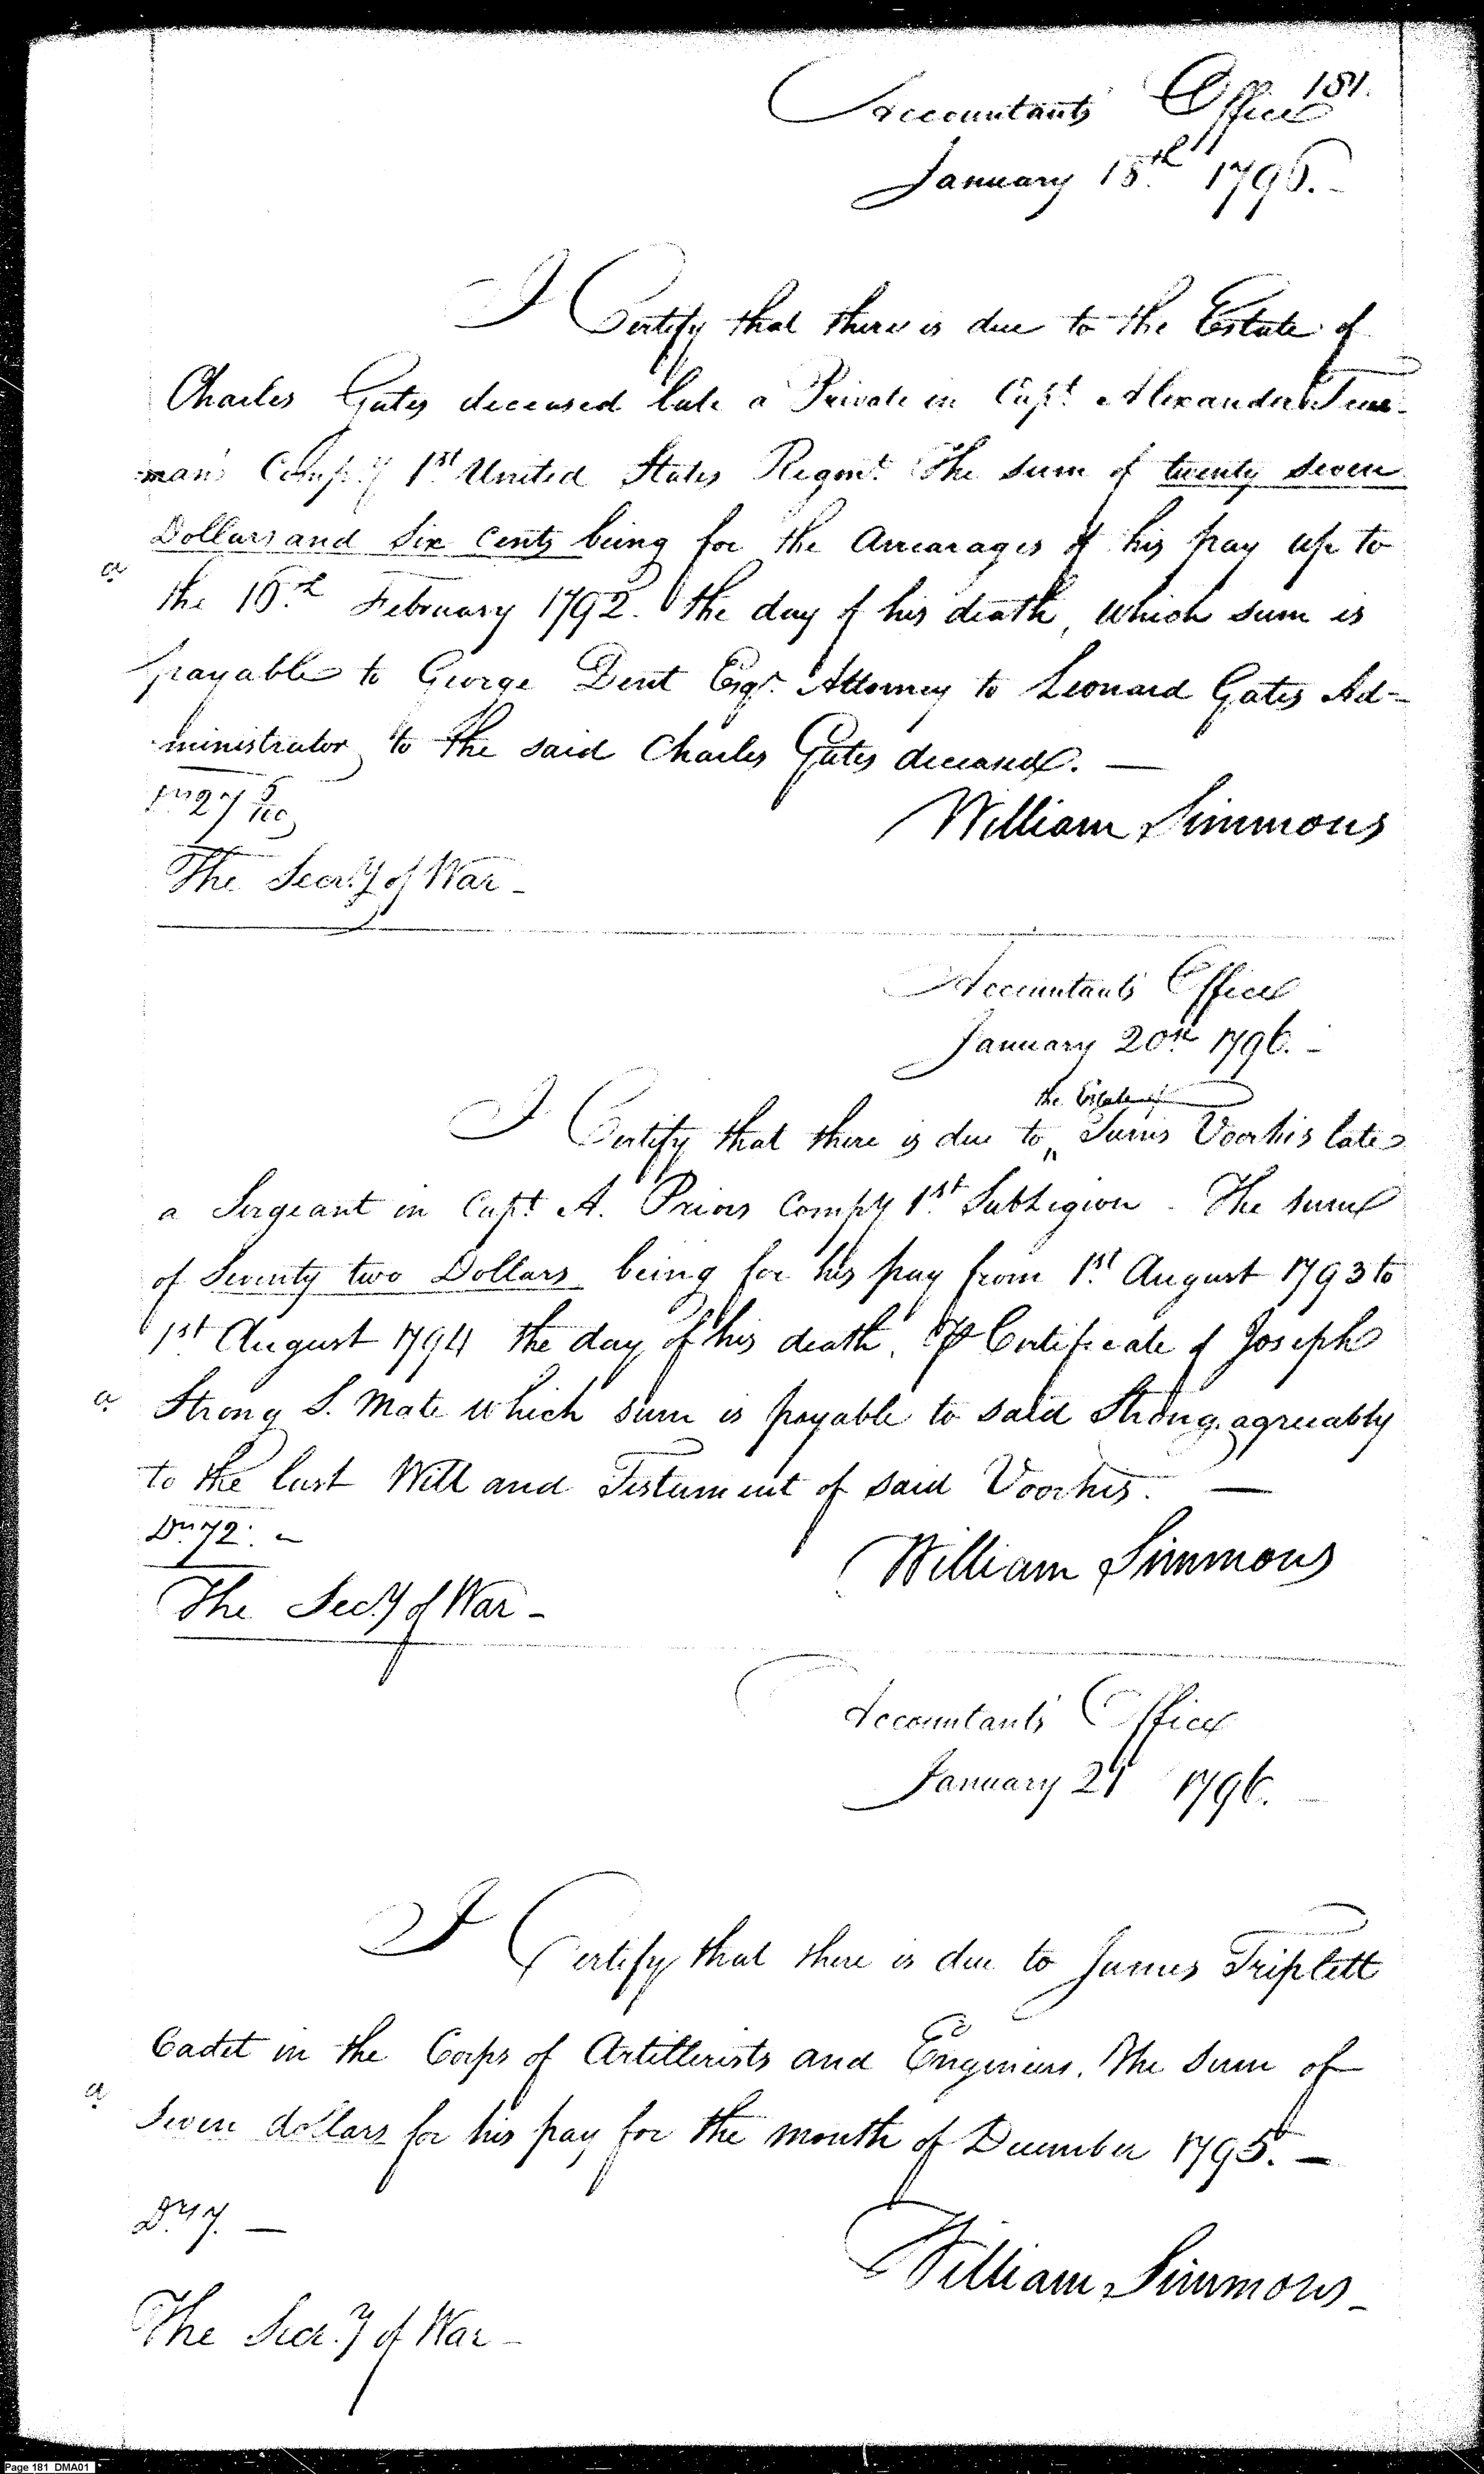 181.
Accountants Office
January 18th 1796.
I Certify that there is due to the Estate of
Charles Gates deceased late a Private in Capt. Alexander True-
-man's Compy. 1st United States Regmt. The sum of twenty seven
Dollars and Six Cents being for the Arrearages of his pay up to
a
the 16th February 1792. the day of his death, which sum is
payable to George Dent Esqr. Attorney to Leonard Gates Ad-
ministrator to the said Charles Gates deceased. —
27 6/100
William Simmons
The Secr.y of War -
Accountants Office
January 20th 1796. -
the Estate of
I Certify that there is due to Tunis Voorhis late
a Sergeant in Capt. A. Priors Compy 1st Sub Legion - The sum
of Seventy two Dollars being for his pay from 1st August 1793 to
1st August 1794 the day of his death, ⅌ Certificate of Joseph
a
Strong S. Mate which sum is payable to said Strong, agreeably
to the last Will and Testament of said Voorhis. —
Drs 72. -
William Simmons
The Secy of War -
Accountants Office
January 21 1796. -
I Certify that there is due to James Triplett
Cadet in the Corps of Artillerists and Engineers. The sum of
a
Seven dollars for his pay for the month of December 1795. -
Drs 7. —
William Simmons -
The Secr.y of War -
Page 181 DMA01